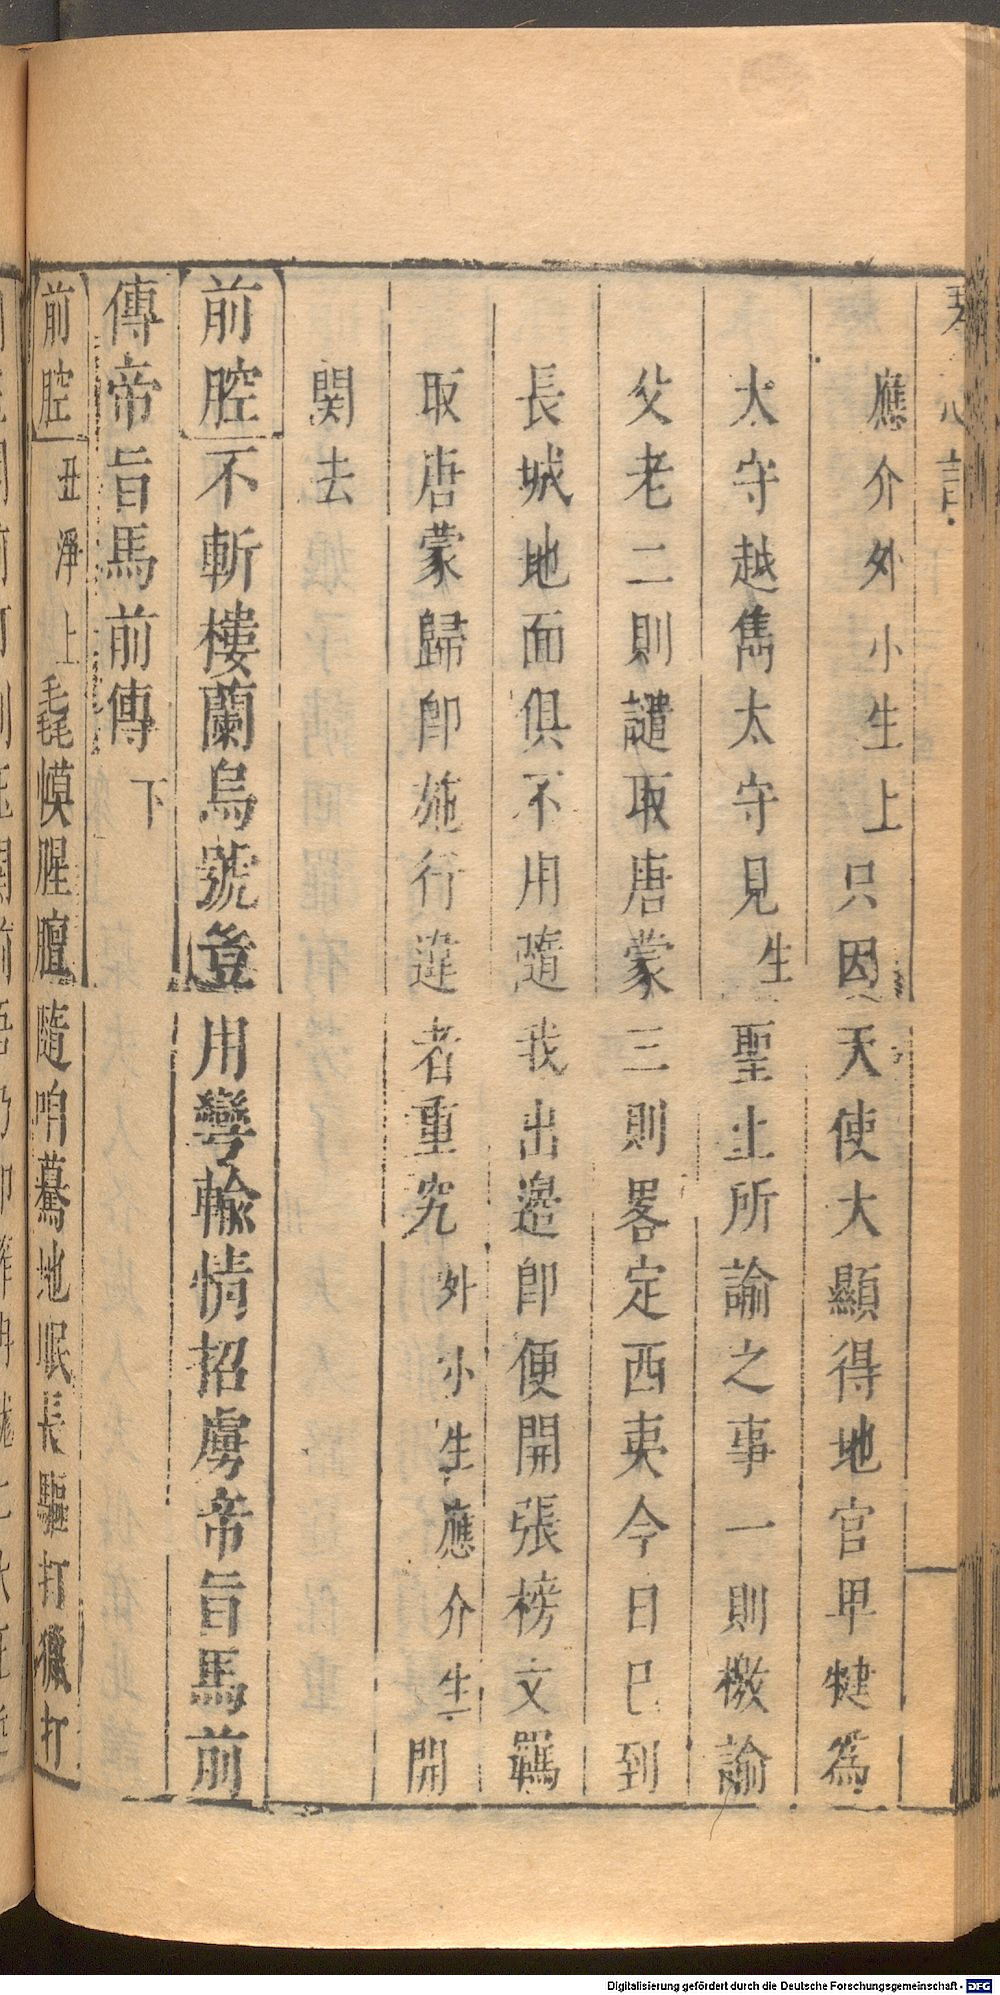 琴心記
應介外小生上只因天使大顯得地官𤰞犍爲
太守越雋太守見生聖上所諭之事一則檄諭
父老二則譴取唐蒙三則畧定西夷今日巳到
長城地面俱不用隨我出邉即便開張榜文羈
取唐蒙歸即施行違者重究外小生應介生開
関去
前腔不斬樓蘭烏號豋用彎輸情招虜帝旨馬前
傳帝旨馬前傳下
前腔丑淨上毳幙腥膻隨咱驀地眠長驅打獵打
Digitalisierung gefördert durch die Deutsche Forschungsgemeinschaft - DFG